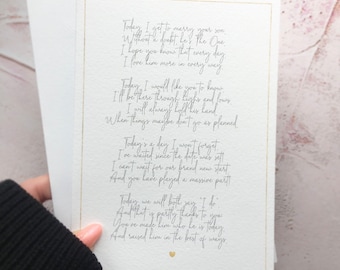 Today I get to marry your son
Without a doubt he's the One
I hope you know that every day
I love him more in every way

Today I would like you to know
I'll be there through highs and lows
I will always hold his hand
When things maybe don't go as planned

Today's a day I won't forget
I've waited since the date was set
I can't wait for our friend new start
And you have played a massive part!

Today we will both say 'I do'
And that is partly thanks to you
You've made him who he is today
And raised him in the best of ways